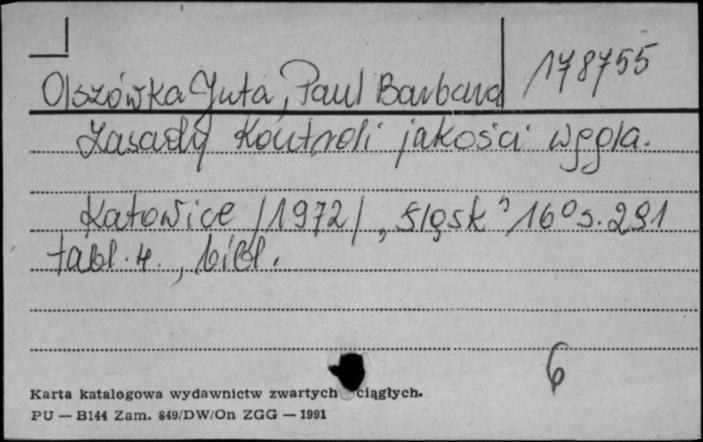 178755
Olszówka Juta, Paul Barbara
Zasady kontroli jakości węgla.
Katowice /1972/ „Śląsk" 16° s. 291
tabl. 4., bibl.
6
Karta katalogowa wydawnictw zwartych ciągłych.
PU — B144 Zam. 849/DW/On ZGG — 1991